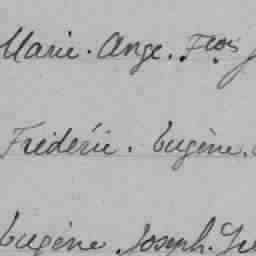 Marie. Ange. Fcois
Frédéric. Eugène.
Eugène. Joseph.